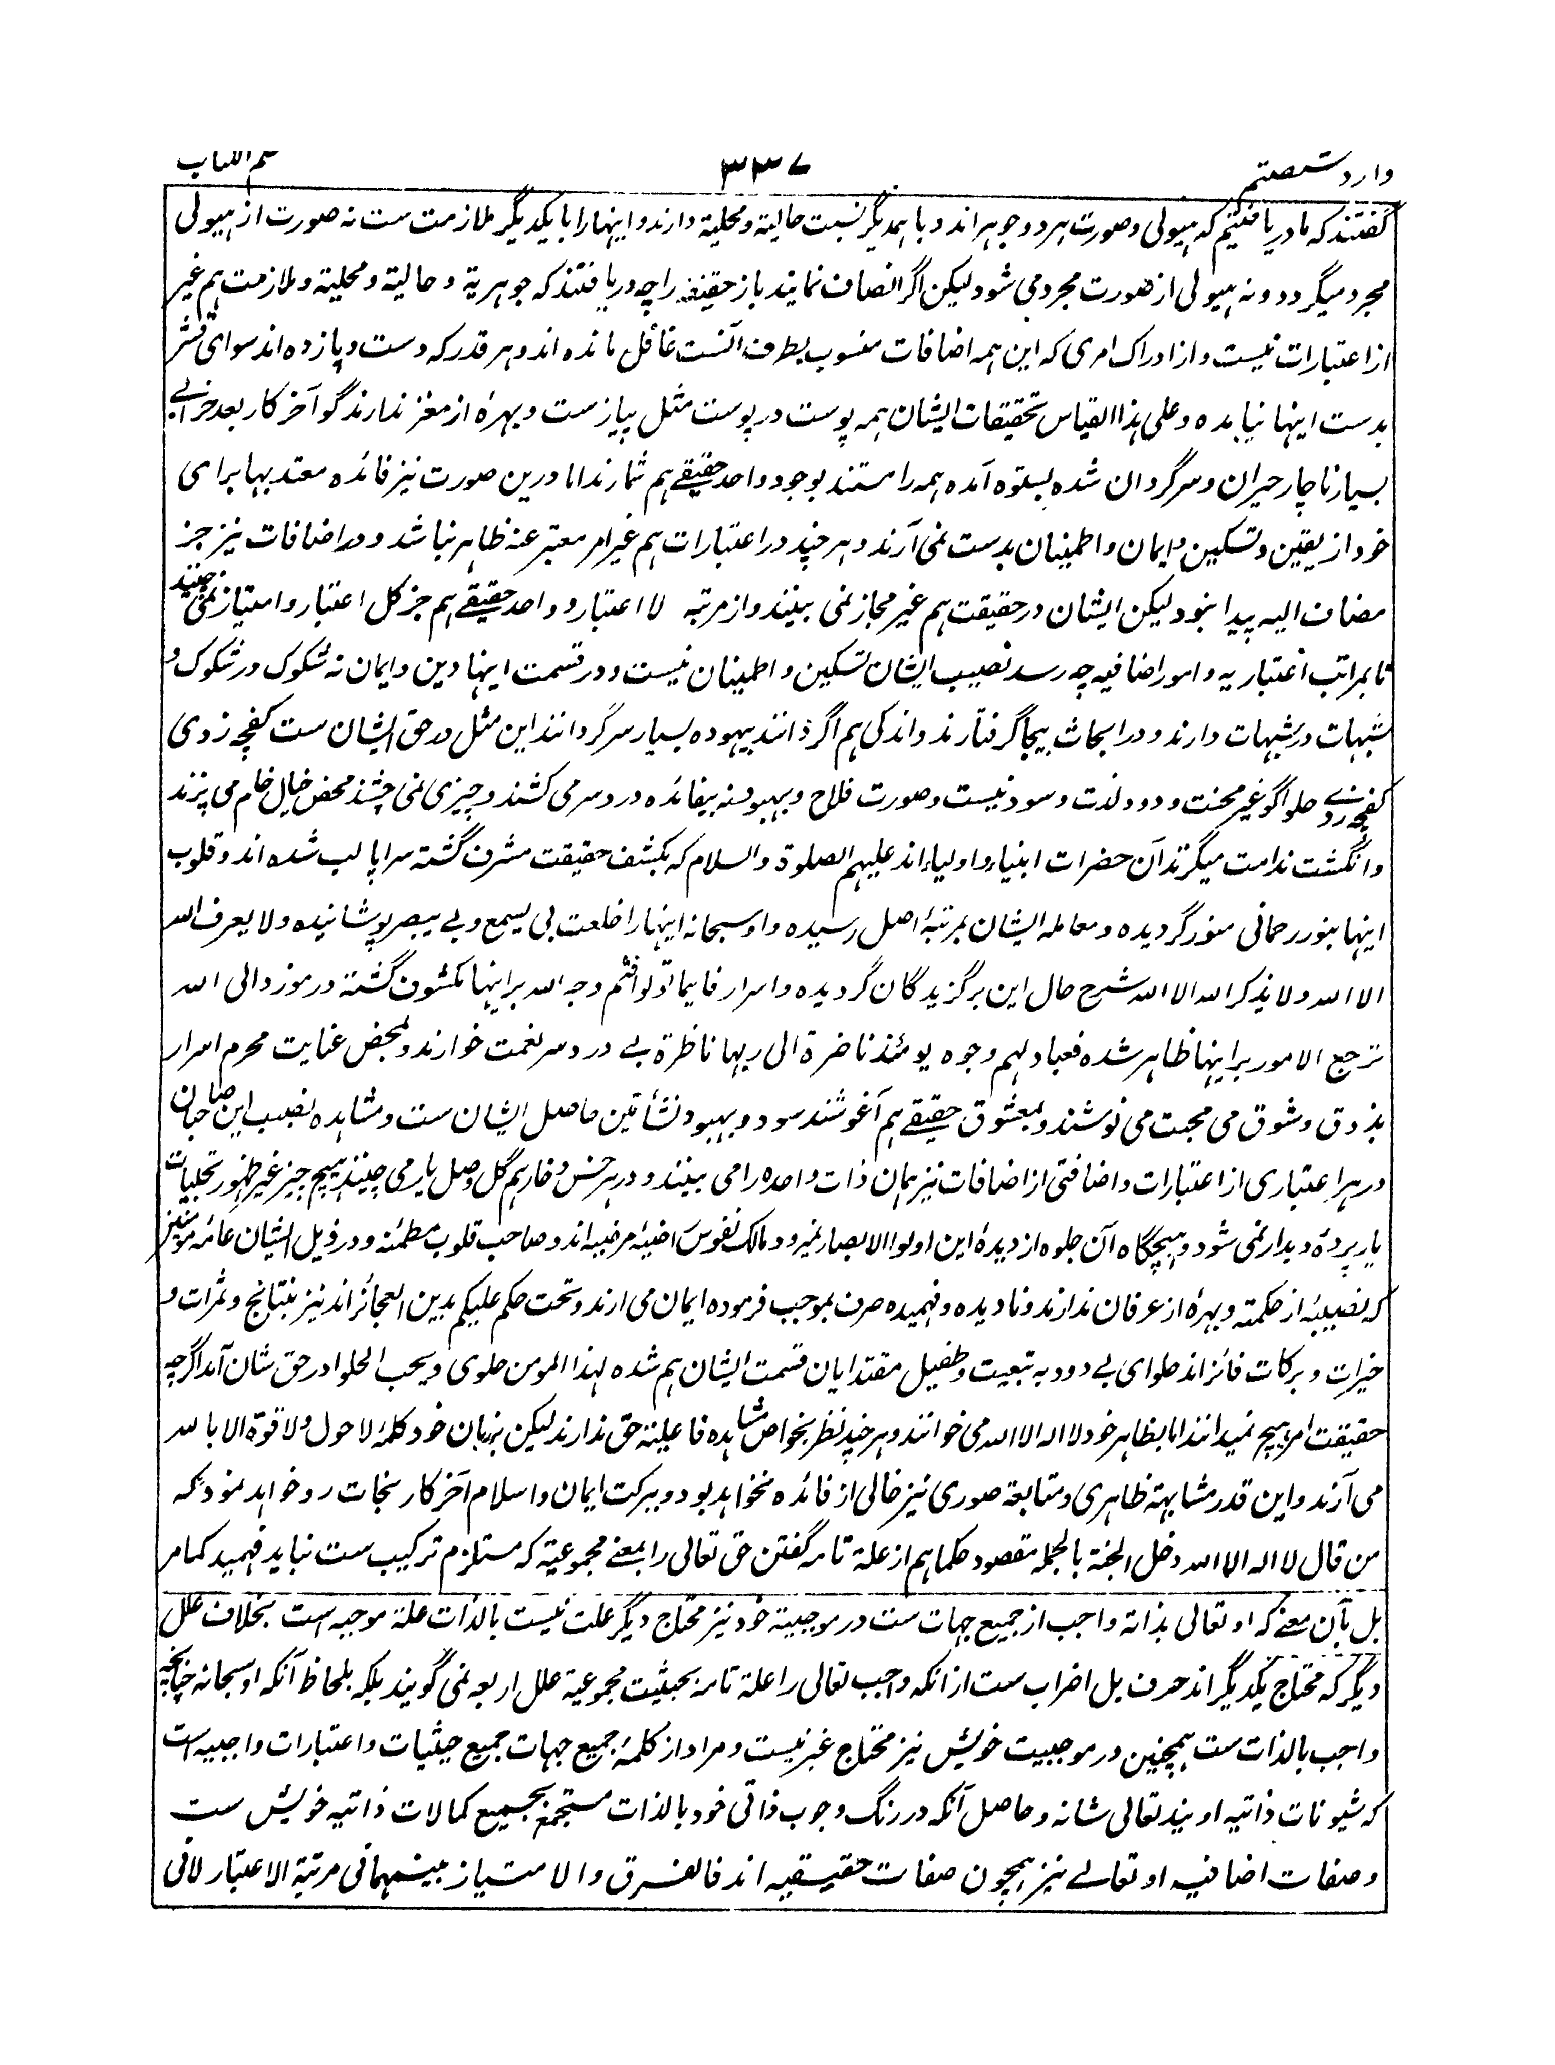 وارد شصتم ۳۳۷ علم الکتاب
گفتند که ما دریافتیم که هیولی وصورت هر دو جوهر اند و با همدیگر نسبت حالیة ومحلیة دارند و اینها را با یکدیگر ملازمت ست نه صورت از هیولی
مجرد میگردد و نه هیولی از صورت مجرد می شود لیکن اگر انصاف نمایند باز حقیقة را چه دریافتند که جوهریة و حالیة و محلیة و ملازمت هم غیر
از اعتبارات نیست و از ادراک امری که این همه اضافات منسوب بطرف آنست غافل مانده اند و هر قدر که دست و پا زده اند سوای قشر
بدست اینها نیامده و علی هذا القیاس تحقیقات ایشان همه پوست در پوست مثل پیاز ست و بهرهٔ از مغز ندارند گو آخر کار بعد خرابی
بسیار ناچار حیران و سرگردان شده بستوه آمده همه را مستند بوجود واحد حقیقے هم شمارند اما درین صورت نیز فائده معتد بها برای
خود از یقین و تسکین و ایمان و اطمینان بدست نمی آرند و هر چند در اعتبارات هم غیر امر معتبر عنه ظاهر نباشد و در اضافات نیز جز
مضاف الیه پیدا نبود لیکن ایشان در حقیقت هم غیر مجاز نمی بینند و از مرتبه لا اعتبار و واحد حقیقے هم جز کل اعتبار و امتیاز نمی چینند
تا بمراتب اعتباریه و امور اضافیه چه رسد نصیب ایشان تسکین و اطمینان نیست و در قسمت اینها دین و ایمان نه شکوک در شکوک و
شبهات در شبهات دارند و در ابحاث بیجا گرفتارند و اندکی هم اگر دانند بیهوده بسیار سرگردانند این مثل در حق ایشان ست کفچه زدی
کفچه زدے حلوا گو غیر محنت و دود لذت و سود نیست و صورت فلاح و بهبود نه بیفائده درد سر می کشند و چیزی نمی چشند محض خیال خام می پزند
و انگشت ندامت میگزند آن حضرات انبیاء و اولیاء اند علیهم الصلوة والسلام که بکشف حقیقت مشرف گشته سراپا لب شده اند و قلوب
اینها بنور رحمانی منور گردیده و معامله ایشان بمرتبهٔ اصل رسیده و او سبحانه اینها را خلعت بی یسمع و بے یبصر پوشانیده و لا یعرف الله
الا الله و لا یذکر الله الا الله شرح حال این برگزیدگان گردیده و اسرار فاینما تولوا فثم وجه الله بر اینها مکشوف گشته و رموز و الی الله
ترجع الامور بر اینها ظاهر شده فعباد لهم وجوه یومئذ ناضرة الی ربها ناظرة بے درد سر نعمت خوارند و بمحض عنایت محرم اسرار
بذوق و شوق می محبت می نوشند و بمعشوق حقیقے هم آغوشند سود و بهبود نشأتین حاصل ایشان ست و مشاهده نصیب این صاحبان
در هر اعتباری از اعتبارات و اضافتی از اضافات نیز همان ذات واحده را می بینند و در هر خس و خار هم گل وصل یار می چینند هیچ چیز غیر ظهور تجلیات
یار پردهٔ دیدار نمی شود و هیچگاه آن جلوه از دیدهٔ این اولوا الابصار نمیرود مالک نفوس راضیهٔ مرضیه اند و صاحب قلوب مطمئنه و در ذیل ایشان عامه مومنین
که نصیبهٔ از حکمت و بهرهٔ از عرفان ندارند و نادیده و نفهمیده صرف بموجب فرموده ایمان می آرند و تحت حکم علیکم بدین العجائز اند نیز بنتائج و ثمرات و
خیرات و برکات فائز اند حلوای بے دود به تبعیت و طفیل مقتدایان قسمت ایشان هم شده لهذا المومن حلوی و یحب الحلوا در حق شان آمد اگرچه
حقیقت امر هیچ نمیدانند اما بظاهر خود لا اله الا الله می خوانند و هر چند نظر بخواص مشاهده فاعلیة حق ندارند لیکن بزبان خود کلمهٔ لا حول و لا قوة الا بالله
می آرند و این قدر مشابهة ظاهری و متابعة صوری نیز خالی از فائده نخواهد بود و ببرکت ایمان و اسلام آخر کار نجات رو خواهد نمود که
من قال لا اله الا الله دخل الجنة بالجمله مقصود حکما هم از علة تامه گفتن حق تعالی را بمعنے مجموعیة که مستلزم ترکیب ست نباید فهمید کما مر
بل بآن معنے که او تعالی بذاته واجب از جمیع جهات ست در موجبیة خود نیز محتاج دیگر علت نیست بالذات علة موجبه است بخلاف علل
دیگر که محتاج یکدیگر اند حرف بل اضراب ست از انکه واجب تعالی را علة تامه بحیثیت مجموعیة علل اربعه نمی گویند بلکه بلحاظ آنکه او سبحانه چنانچه
واجب بالذات ست همچنین در موجبیت خویش نیز محتاج غیر نیست و مراد از کلمهٔ جمیع جهات جمیع حیثیات و اعتبارات واجبیه است
که شیونات ذاتیه اویند تعالی شانه و حاصل آنکه در رنگ وجوب ذاتی خود بالذات مستجمع بجمیع کمالات ذاتیه خویش ست
و صفات اضافیه او تعالے نیز همچون صفات حقیقیه اند فالفرق والامتیاز بینهما فی مرتبة الاعتبار لا فی